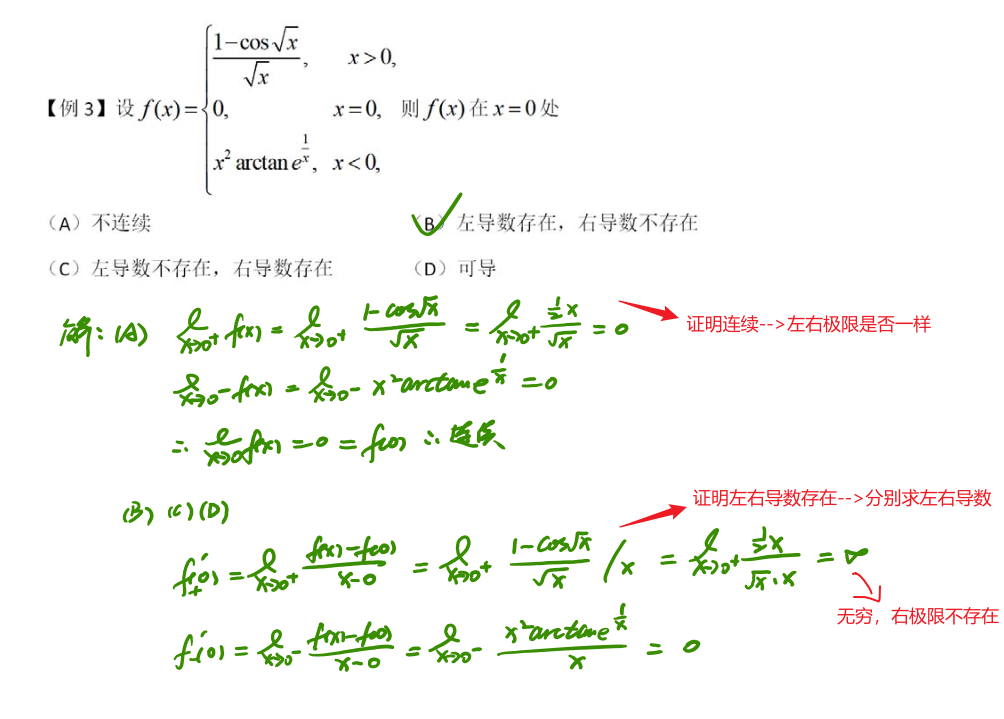 【例 3】设 f(x)= { (1−cos√x)/√x, x>0,
0, x=0, 则 f(x) 在 x=0 处
x² arctan e^(1/x), x<0,
（A）不连续 （B）左导数存在，右导数不存在
（C）左导数不存在，右导数存在 （D）可导
解：(A) lim x→0⁺ f(x) = lim x→0⁺ (1−cos√x)/√x = lim x→0⁺ (½x)/√x = 0
证明连续-->左右极限是否一样
lim x→0⁻ f(x) = lim x→0⁻ x² arctan e^(1/x) = 0
∴ lim x→0 f(x) = 0 = f(0) ∴ 连续
(B) (C) (D)
证明左右导数存在-->分别求左右导数
f₊′(0) = lim x→0⁺ (f(x)−f(0))/(x−0) = lim x→0⁺ (1−cos√x)/√x / x = lim x→0⁺ (½x)/(√x·x) = ∞
无穷，右极限不存在
f₋′(0) = lim x→0⁻ (f(x)−f(0))/(x−0) = lim x→0⁻ (x² arctan e^(1/x))/x = 0